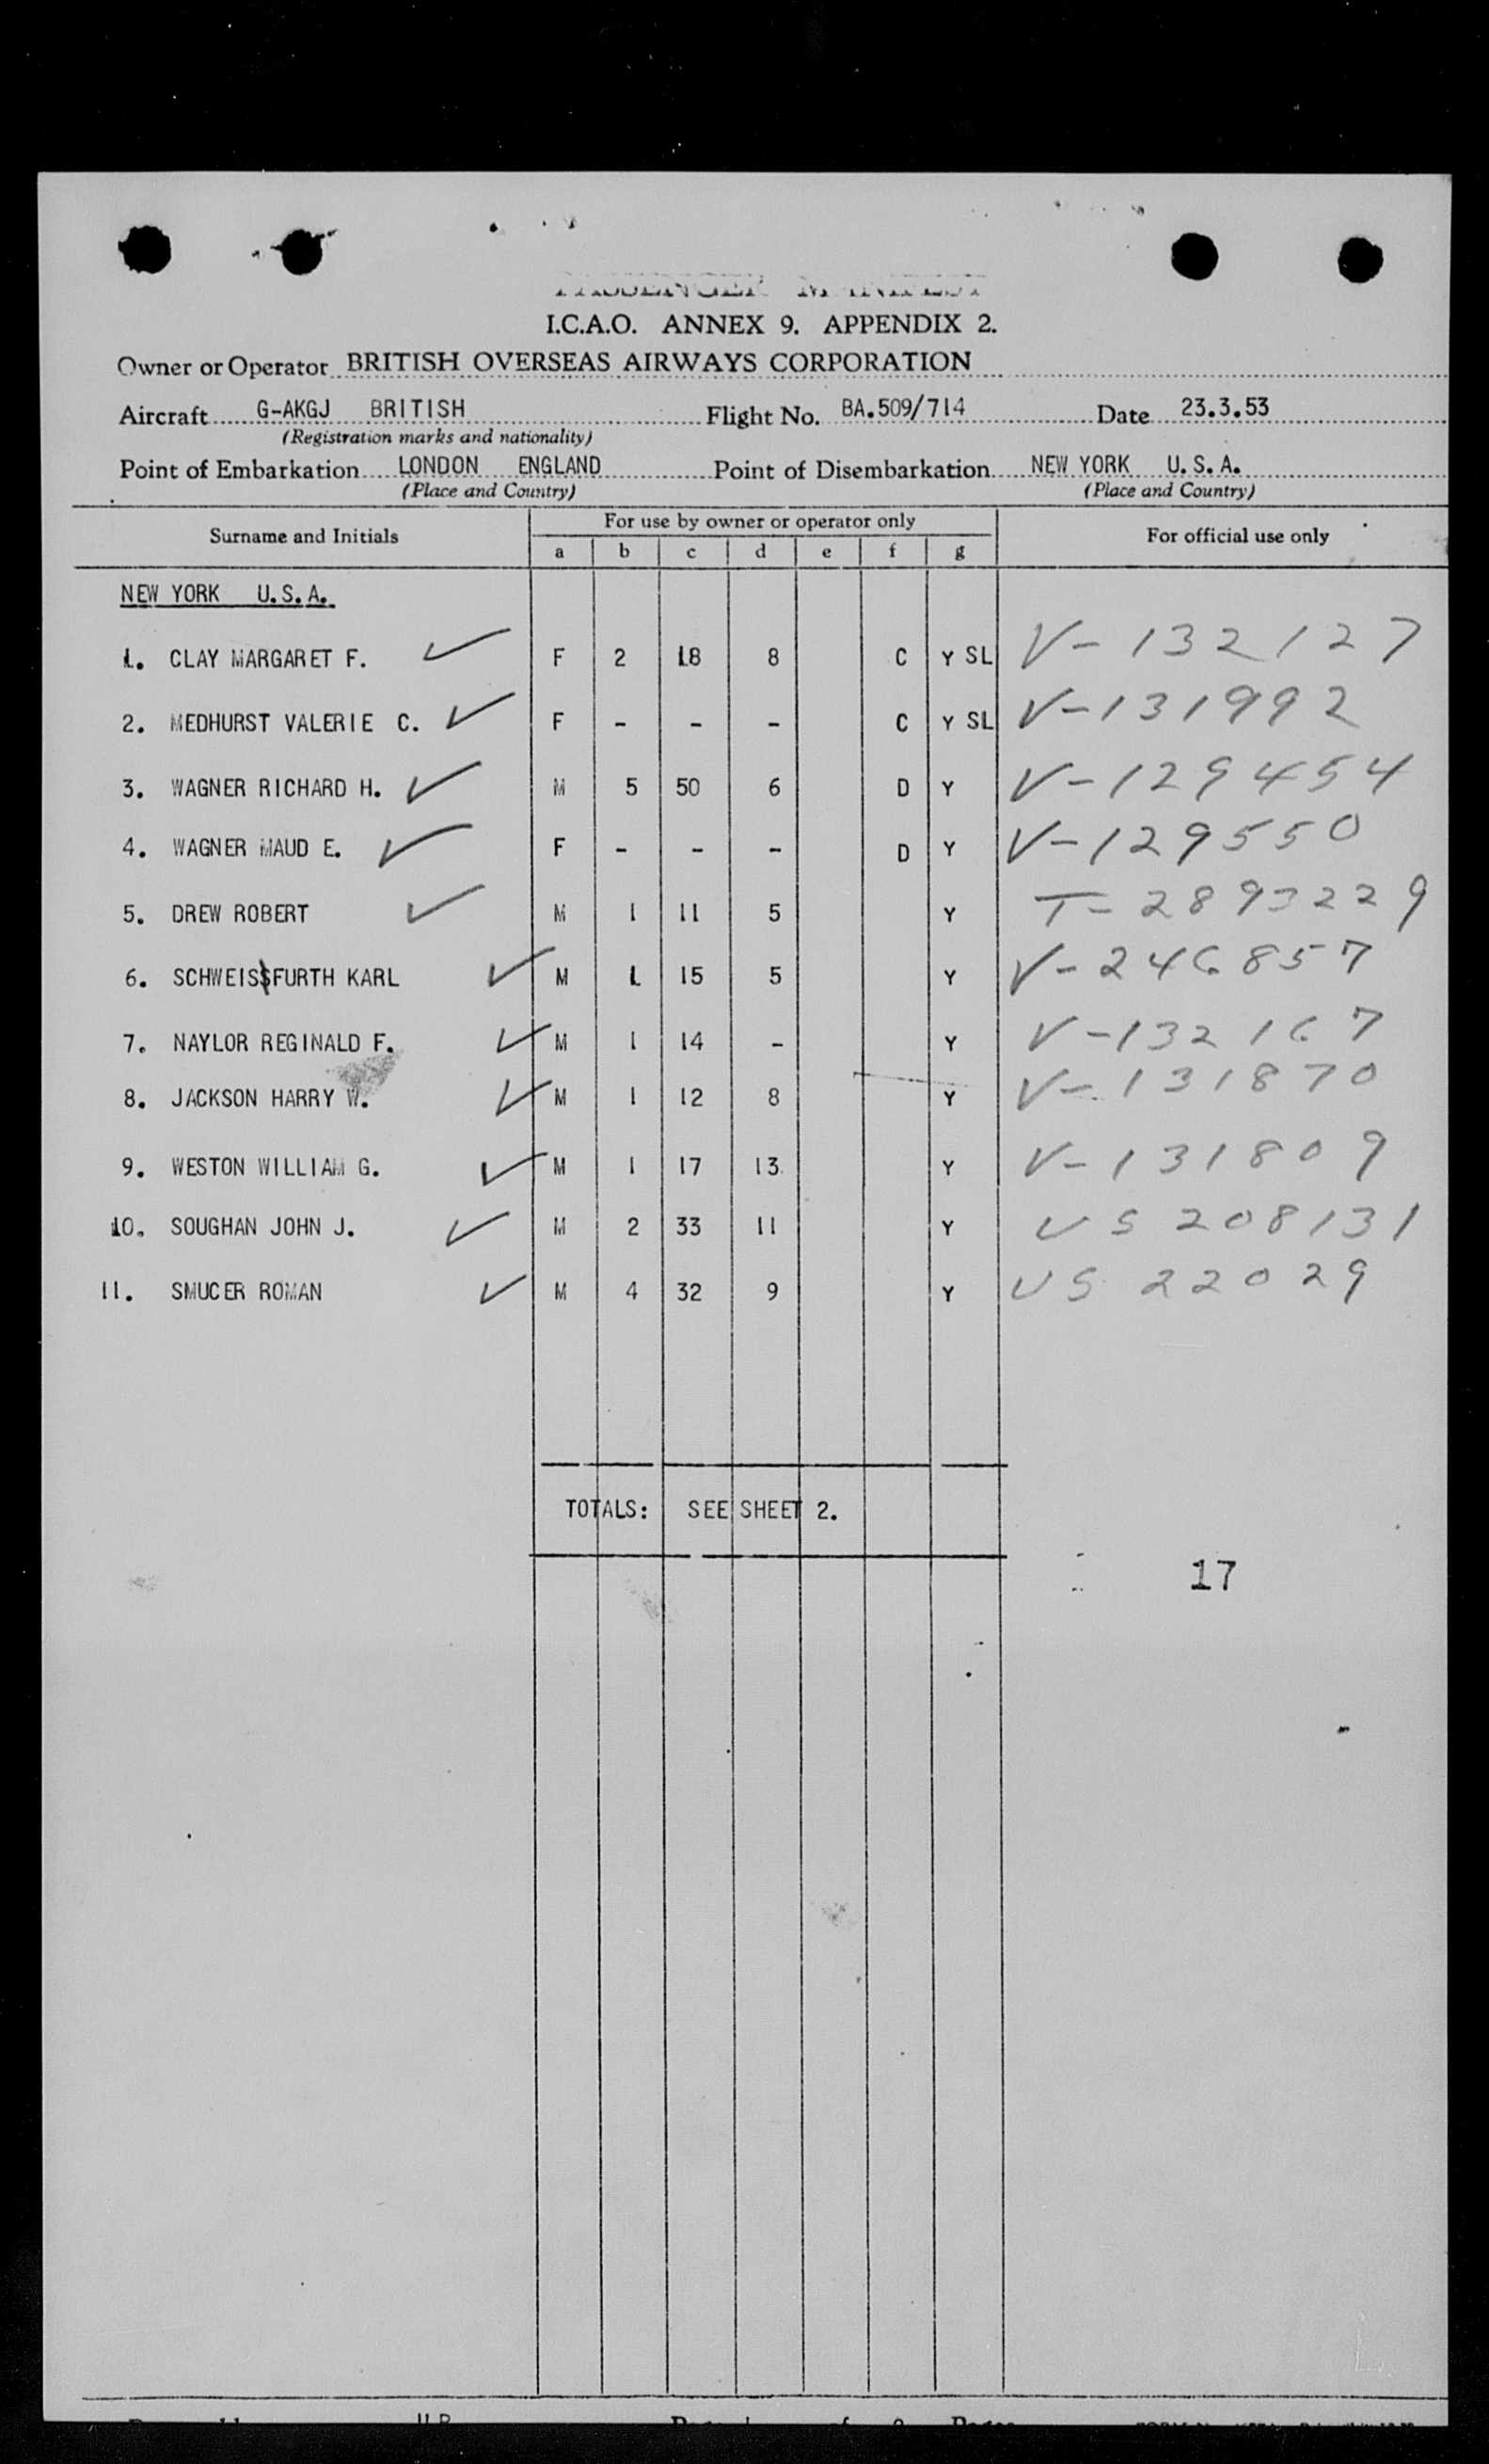 PASSENGER MANIFEST
I.C.A.O. ANNEX 9. APPENDIX 2.
Owner or Operator BRITISH OVERSEAS AIRWAYS CORPORATION
Aircraft G-AKGJ BRITISH Flight No. BA.509/714 Date 23.3.53
(Registration marks and nationality)
Point of Embarkation LONDON ENGLAND Point of Disembarkation NEW YORK U.S.A.
(Place and Country) (Place and Country)
Surname and Initials For use by owner or operator only For official use only
a b c d e f g
NEW YORK U.S.A.
1. CLAY MARGARET F. F 2 18 8 C Y SL V-132127
2. MEDHURST VALERIE C. F - - - C Y SL V-131992
3. WAGNER RICHARD H. M 5 50 6 D Y V-129454
4. WAGNER MAUD E. F - - - D Y V-129550
5. DREW ROBERT M 1 11 5 Y T-2893229
6. SCHWEISSFURTH KARL M 1 15 5 Y V-246857
7. NAYLOR REGINALD F. M 1 14 - Y V-132167
8. JACKSON HARRY W. M 1 12 8 Y V-131870
9. WESTON WILLIAM G. M 1 17 13 Y V-131809
10. SOUGHAN JOHN J. M 2 33 11 Y US 208131
11. SMUCER ROMAN M 4 32 9 Y US 22029
TOTALS: SEE SHEET 2.
17